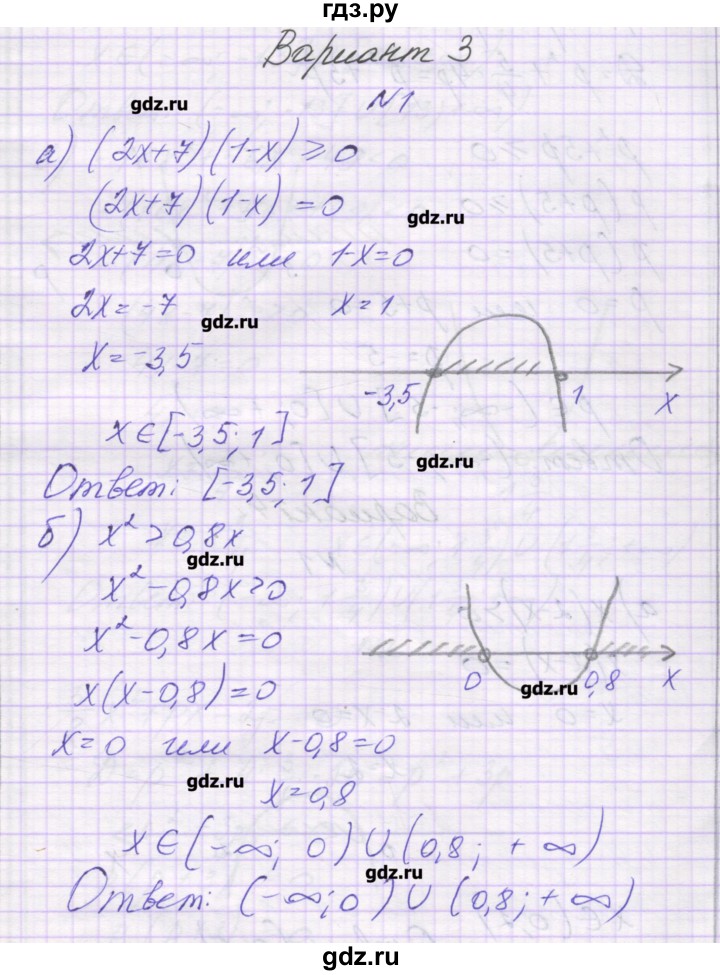 гдз.ру
Вариант 3
gdz.ru
№1
а) (2x+7)(1-x) ≥ 0
(2x+7)(1-x) = 0
gdz.ru
2x+7=0 или 1-x=0
2x=-7 x=1
gdz.ru
x=-3,5
-3,5 1 x
x∈[-3,5; 1]
gdz.ru
Ответ: [-3,5; 1]
б) x²>0,8x
gdz.ru
x²-0,8x>0
x²-0,8x=0
x(x-0,8)=0
0 0,8 x
gdz.ru
x=0 или x-0,8=0
gdz.ru
x=0,8
x∈(-∞; 0)∪(0,8; +∞)
gdz.ru
Ответ: (-∞;0)∪(0,8;+∞)
gdz.ru